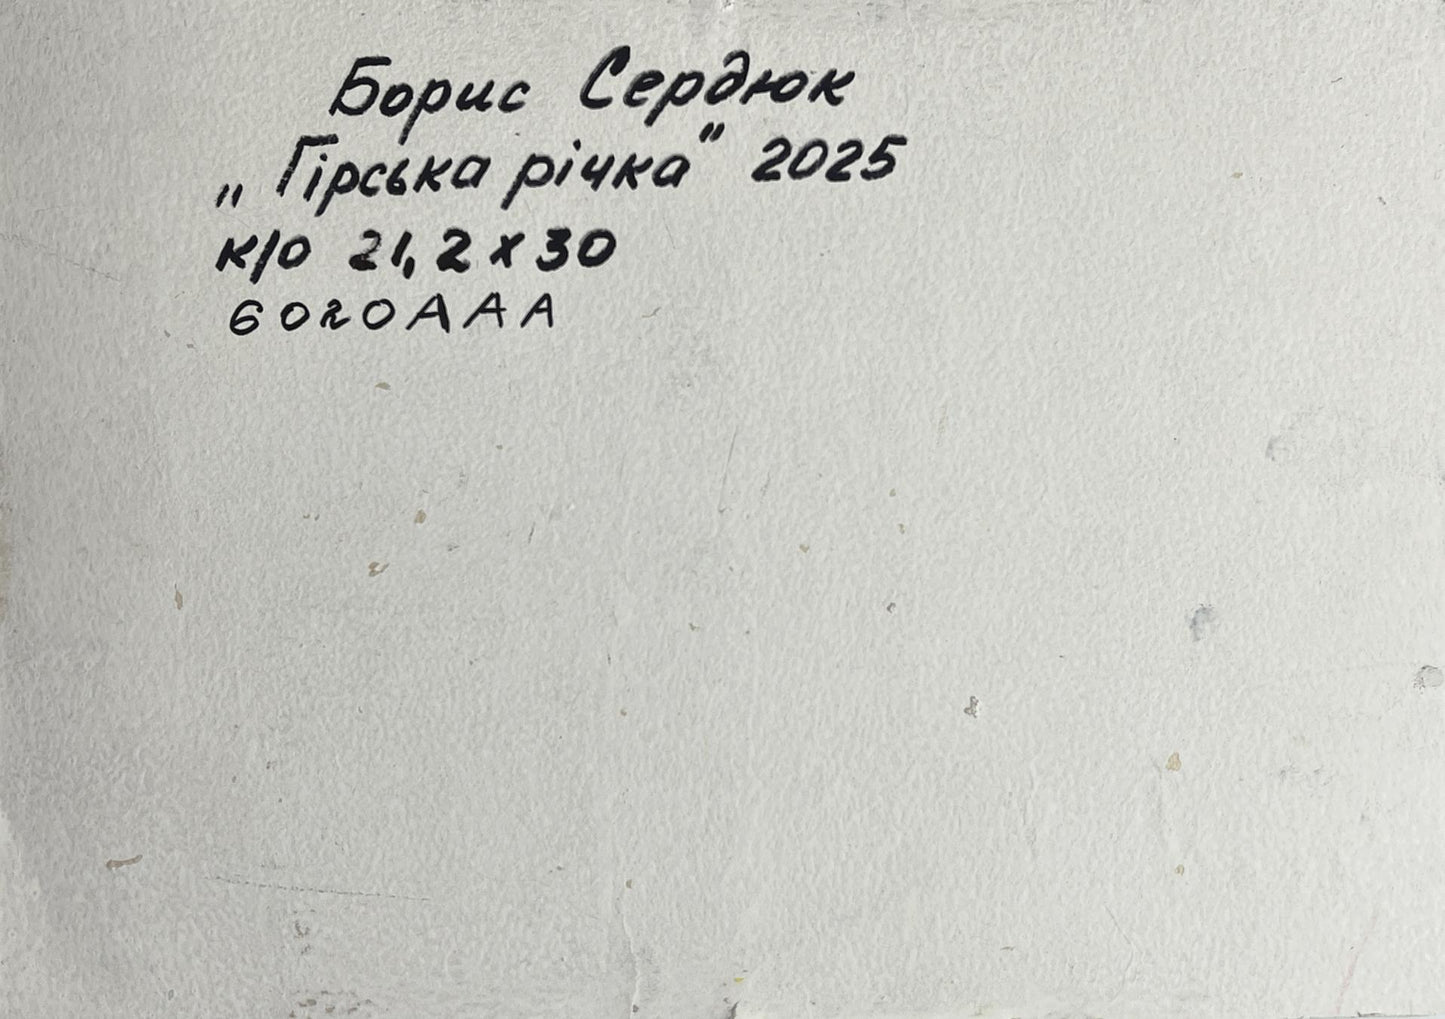 Борис Сердюк
„Гірська річка" 2025
к/о 21,2 x 30
6020AAA